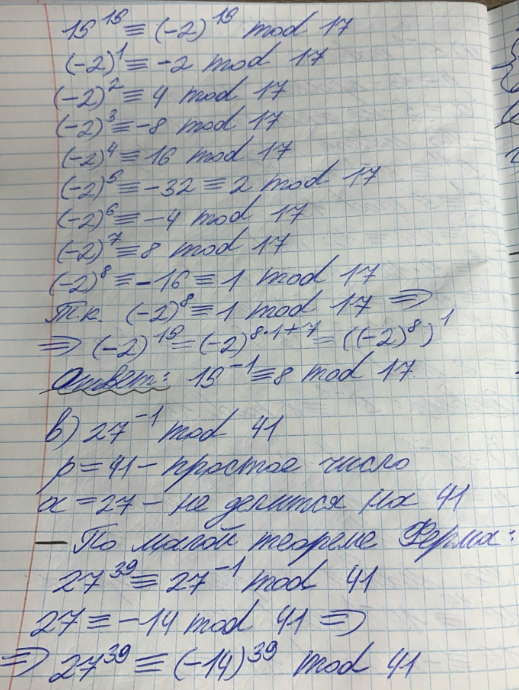 15¹⁵ ≡ (-2)¹⁵ mod 17
(-2)¹ ≡ -2 mod 17
(-2)² ≡ 4 mod 17
(-2)³ ≡ -8 mod 17
(-2)⁴ ≡ 16 mod 17
(-2)⁵ ≡ -32 ≡ 2 mod 17
(-2)⁶ ≡ -4 mod 17
(-2)⁷ ≡ 8 mod 17
(-2)⁸ ≡ -16 ≡ 1 mod 17
Т.к. (-2)⁸ ≡ 1 mod 17 ⇒
⇒ (-2)¹⁵ = (-2)⁸·¹⁺⁷ = ((-2)⁸)¹
Ответ: 15⁻¹ ≡ 8 mod 17
в) 27⁻¹ mod 41
p = 41 - простое число
a = 27 - не делится на 41
— По малой теореме Ферма:
27³⁹ ≡ 27⁻¹ mod 41
27 ≡ -14 mod 41 ⇒
⇒ 27³⁹ ≡ (-14)³⁹ mod 41